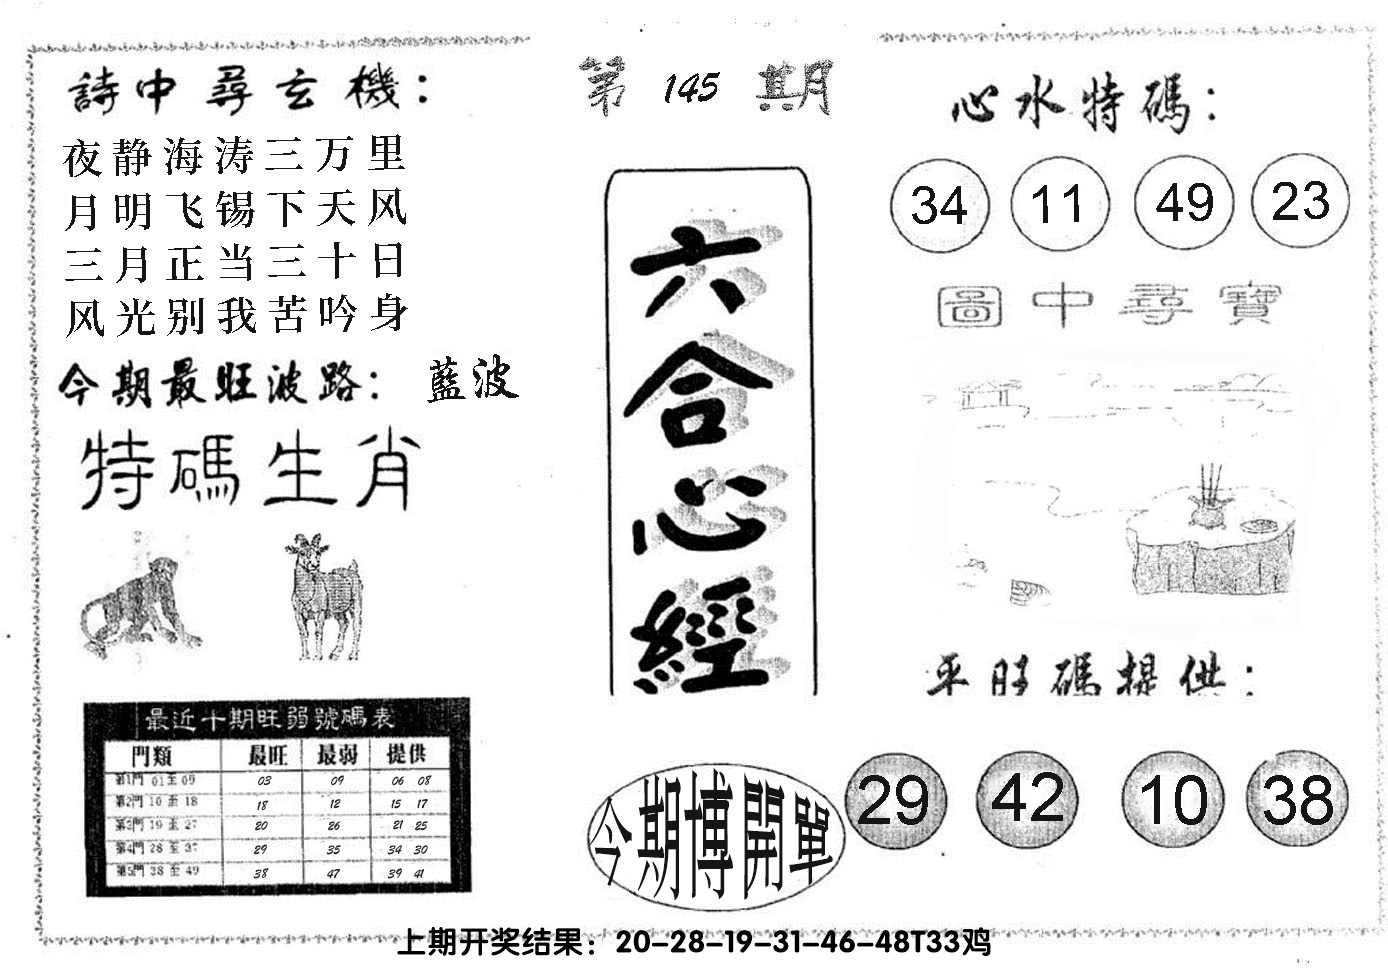 第 145 期
詩中尋玄機：
夜静海涛三万里
月明飞锡下天风
三月正当三十日
风光别我苦吟身
今期最旺波路： 藍波
特碼生肖
最近十期旺弱號碼表
門類 最旺 最弱 提供
第1門 01至09 03 09 06 08
第2門 10至18 18 12 15 17
第3門 19至27 20 26 21 25
第4門 28至37 29 35 34 30
第5門 38至49 38 47 39 41
六合心經
今期博開單
心水特碼：
34 11 49 23
圖中尋寶
平旺碼提供：
29 42 10 38
上期开奖结果：20-28-19-31-46-48T33鸡